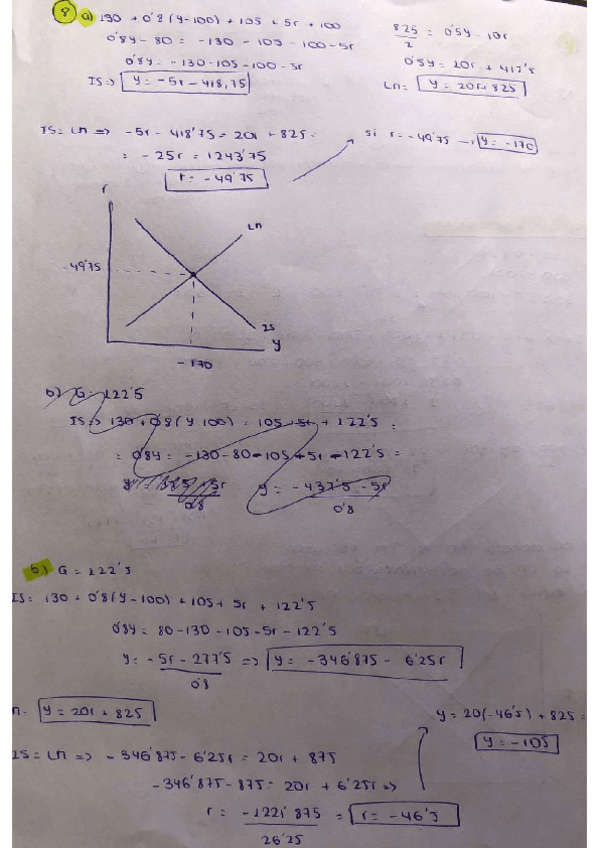 8 a) 130 + 0'8 (y-100) + 105 + 5r + 100
0'8y - 80 = -130 - 105 - 100 - 5r
0'8y = -130-105-100-5r
IS => y = -5r - 418,75
825/2 = 0'5y - 10r
0'5y = 20r + 412'5
LM = y = 20r + 825
IS = LM => -5r - 418'75 = 20r + 825 =
= -25r = 1243'75
r = -49'75
si r = -49'75 → y = -170
r
LM
-49'75
IS
y
-170
b) G = 122'5
IS => 130 + 0'8 (y 100) = 105 + 5r + 122'5 =
= 0'8y = -130 - 80 - 105 + 5r - 122'5 =
y = -437'5 - 5r / 0'8
b) G = 122'5
IS: 130 + 0'8 (y-100) + 105 + 5r + 122'5
0'8y = 80 - 130 - 105 - 5r - 122'5
y = -5r - 277'5 / 0'8 => y = -346'875 - 6'25r
y = 20r + 825
y = 20(-46'5) + 825 =
y = -105
IS = LM => -346'875 - 6'25r = 20r + 875
-346'875 - 875 = 20r + 6'25r =>
r = -1221'875 / 26'25 = r = -46'5